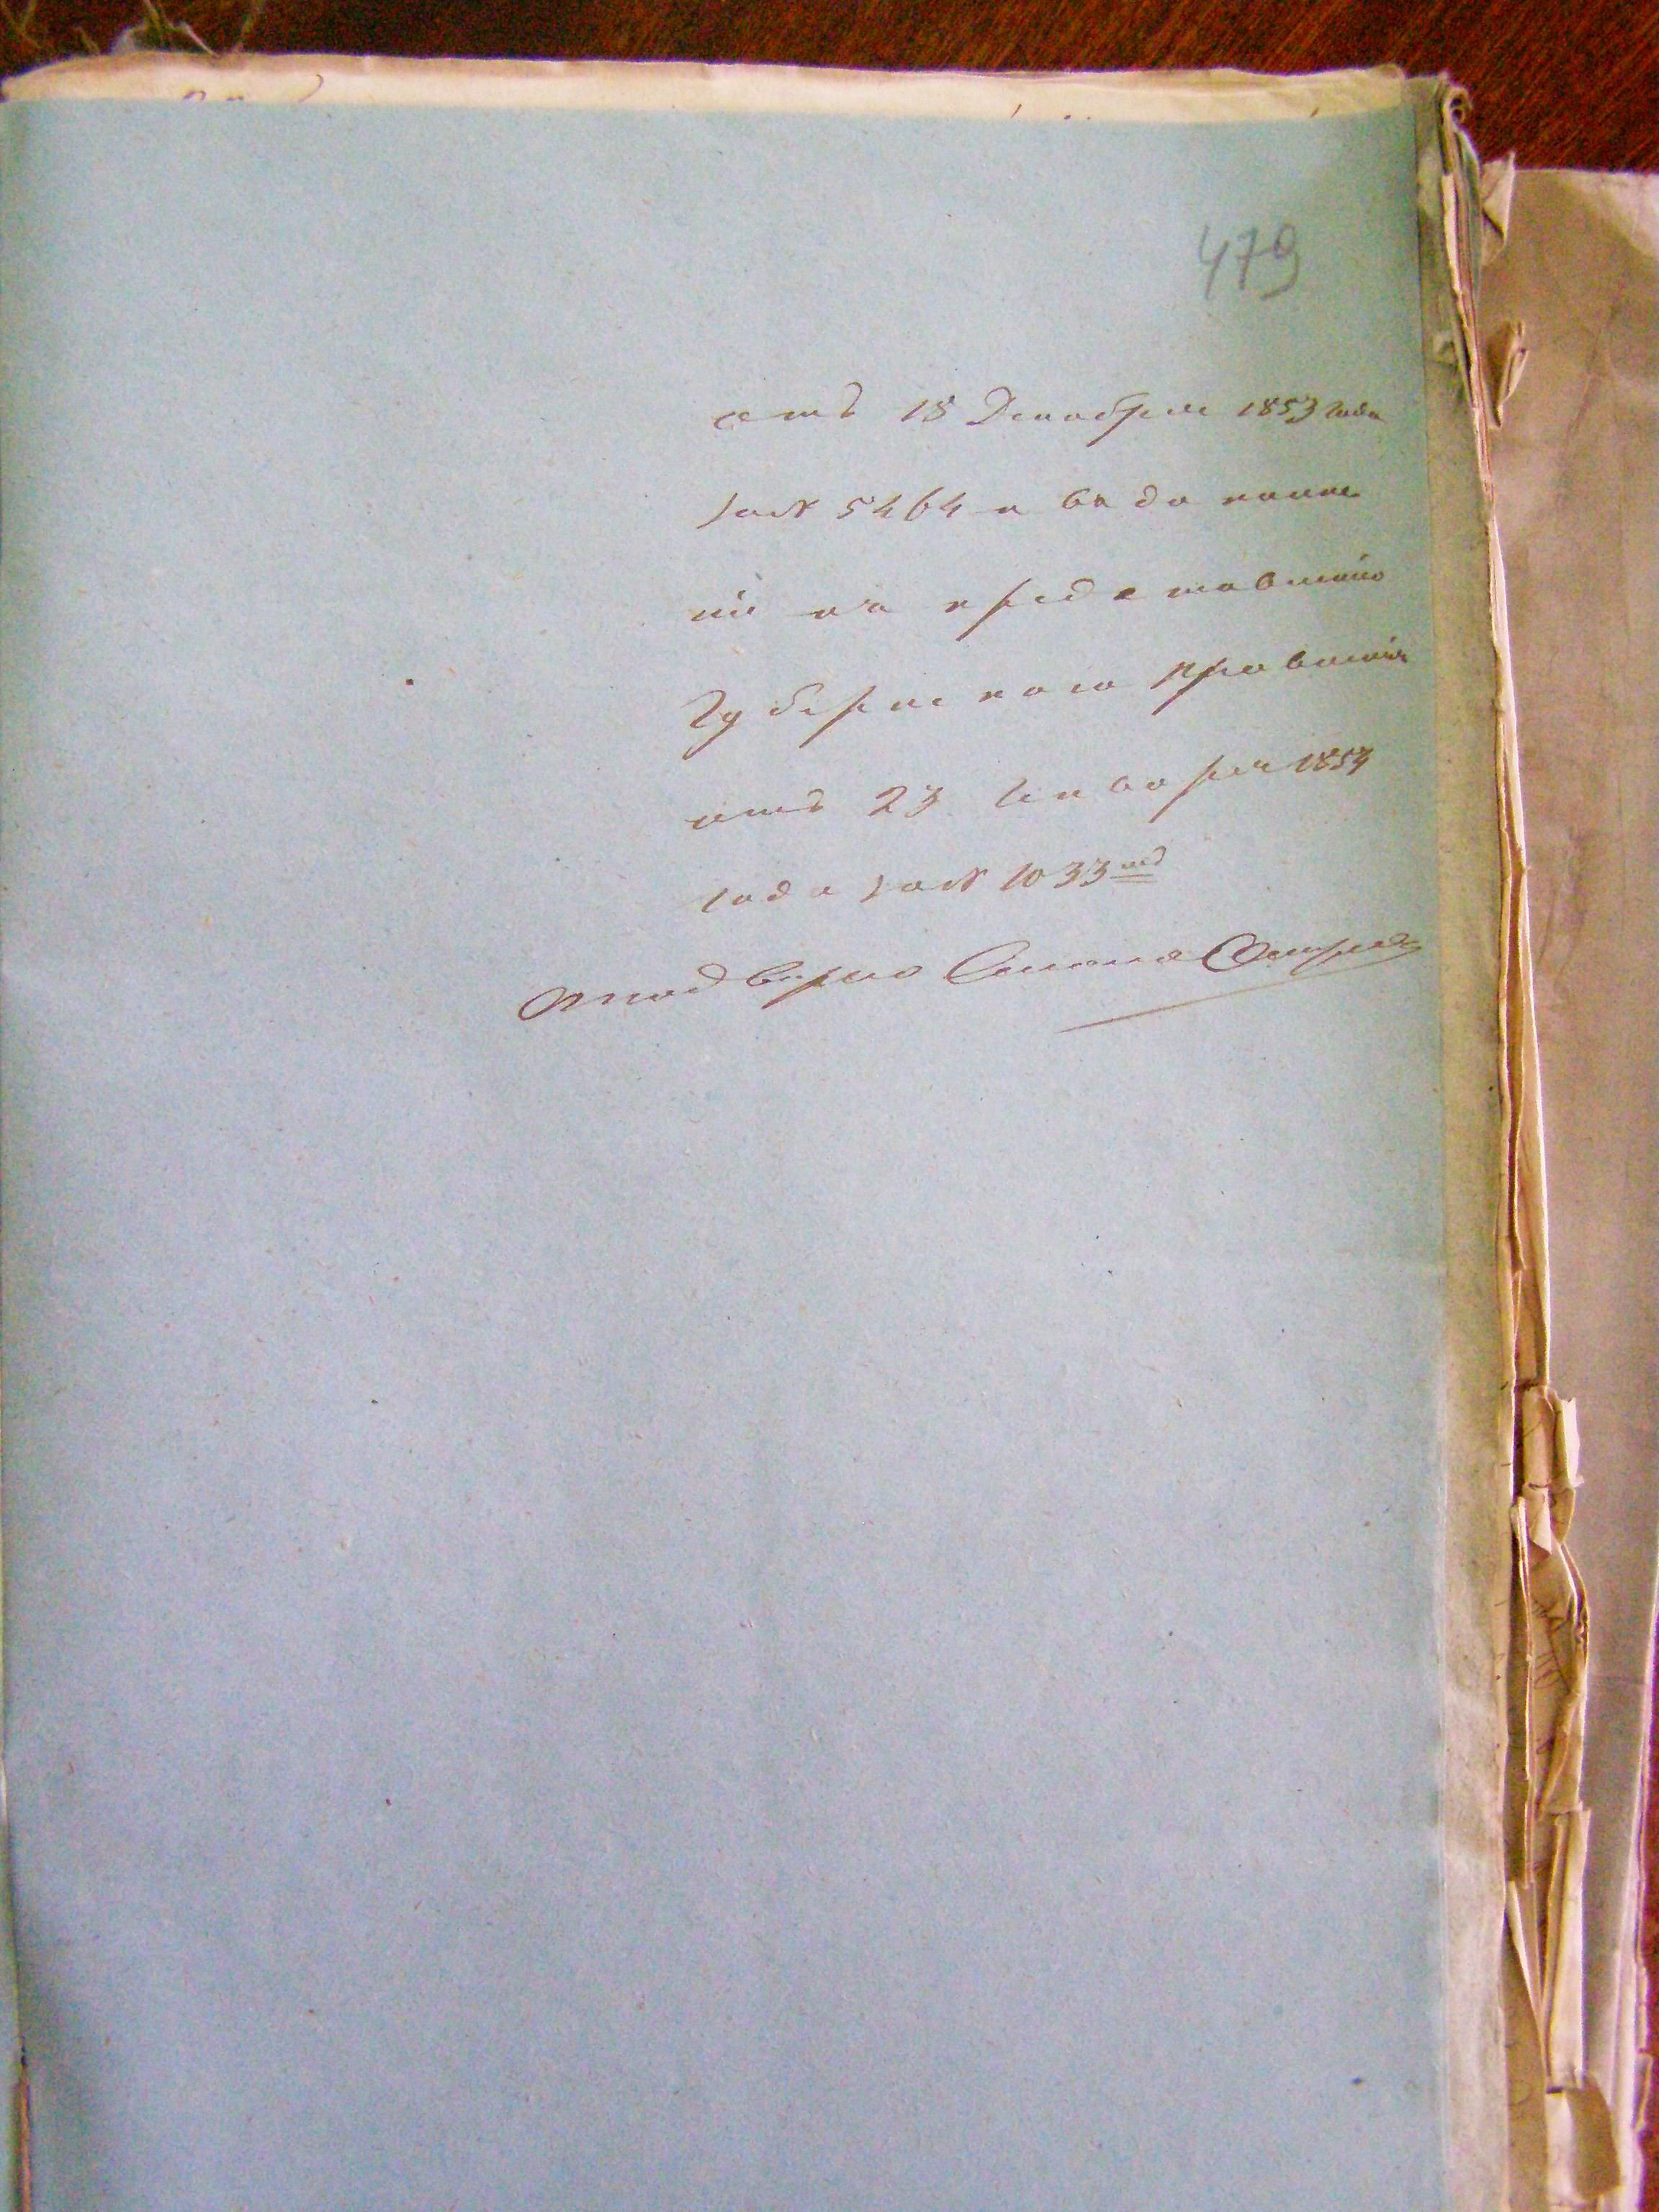 479
отъ 18 Декабря 1853 года
за № 5464 и въ дополне
ніе къ представленію
Губернскаго Правленія
отъ 23 Января 1854
года за № 1033мъ